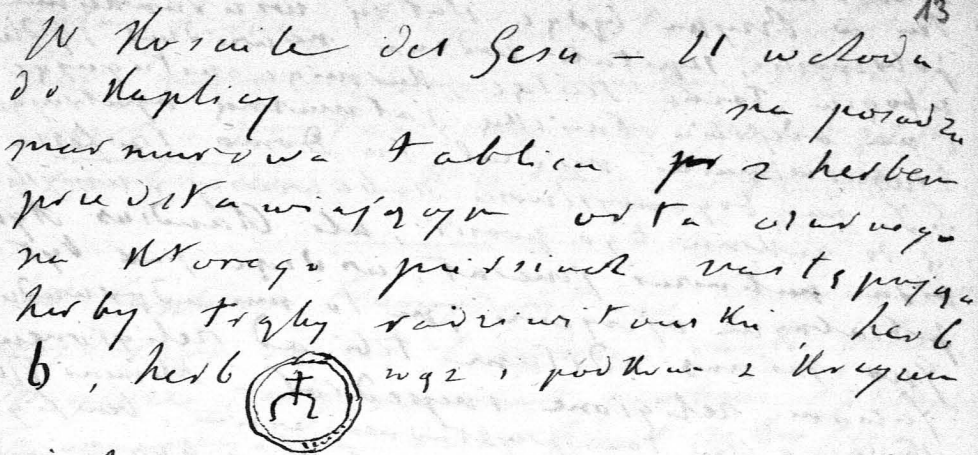 13
W Kosciele del Gesu – U wchodu
do Kaplicy na posadzce
marmurowa tablica z herbem
przedstawiającym orła czarnego
na którego piersiach następujące
herby trąby radziwiłłowskie, herb
b, herb wąz i podkowa z Krzyżem